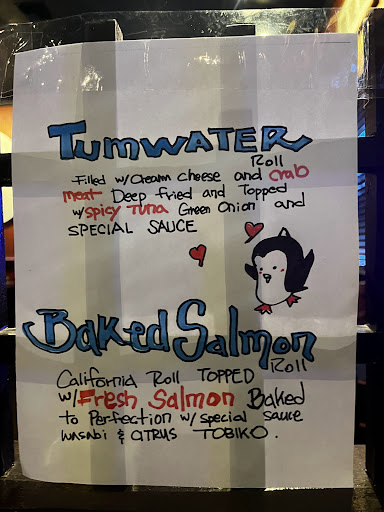 TUMWATER
Roll
Filled w/cream cheese and crab
meat Deep fried and Topped
w/spicy TUNA Green Onion and
SPECIAL SAUCE
Baked Salmon
Roll
California Roll TOPPED
w/Fresh Salmon Baked
to Perfection w/special sauce
wasabi & CITRUS TOBIKO.